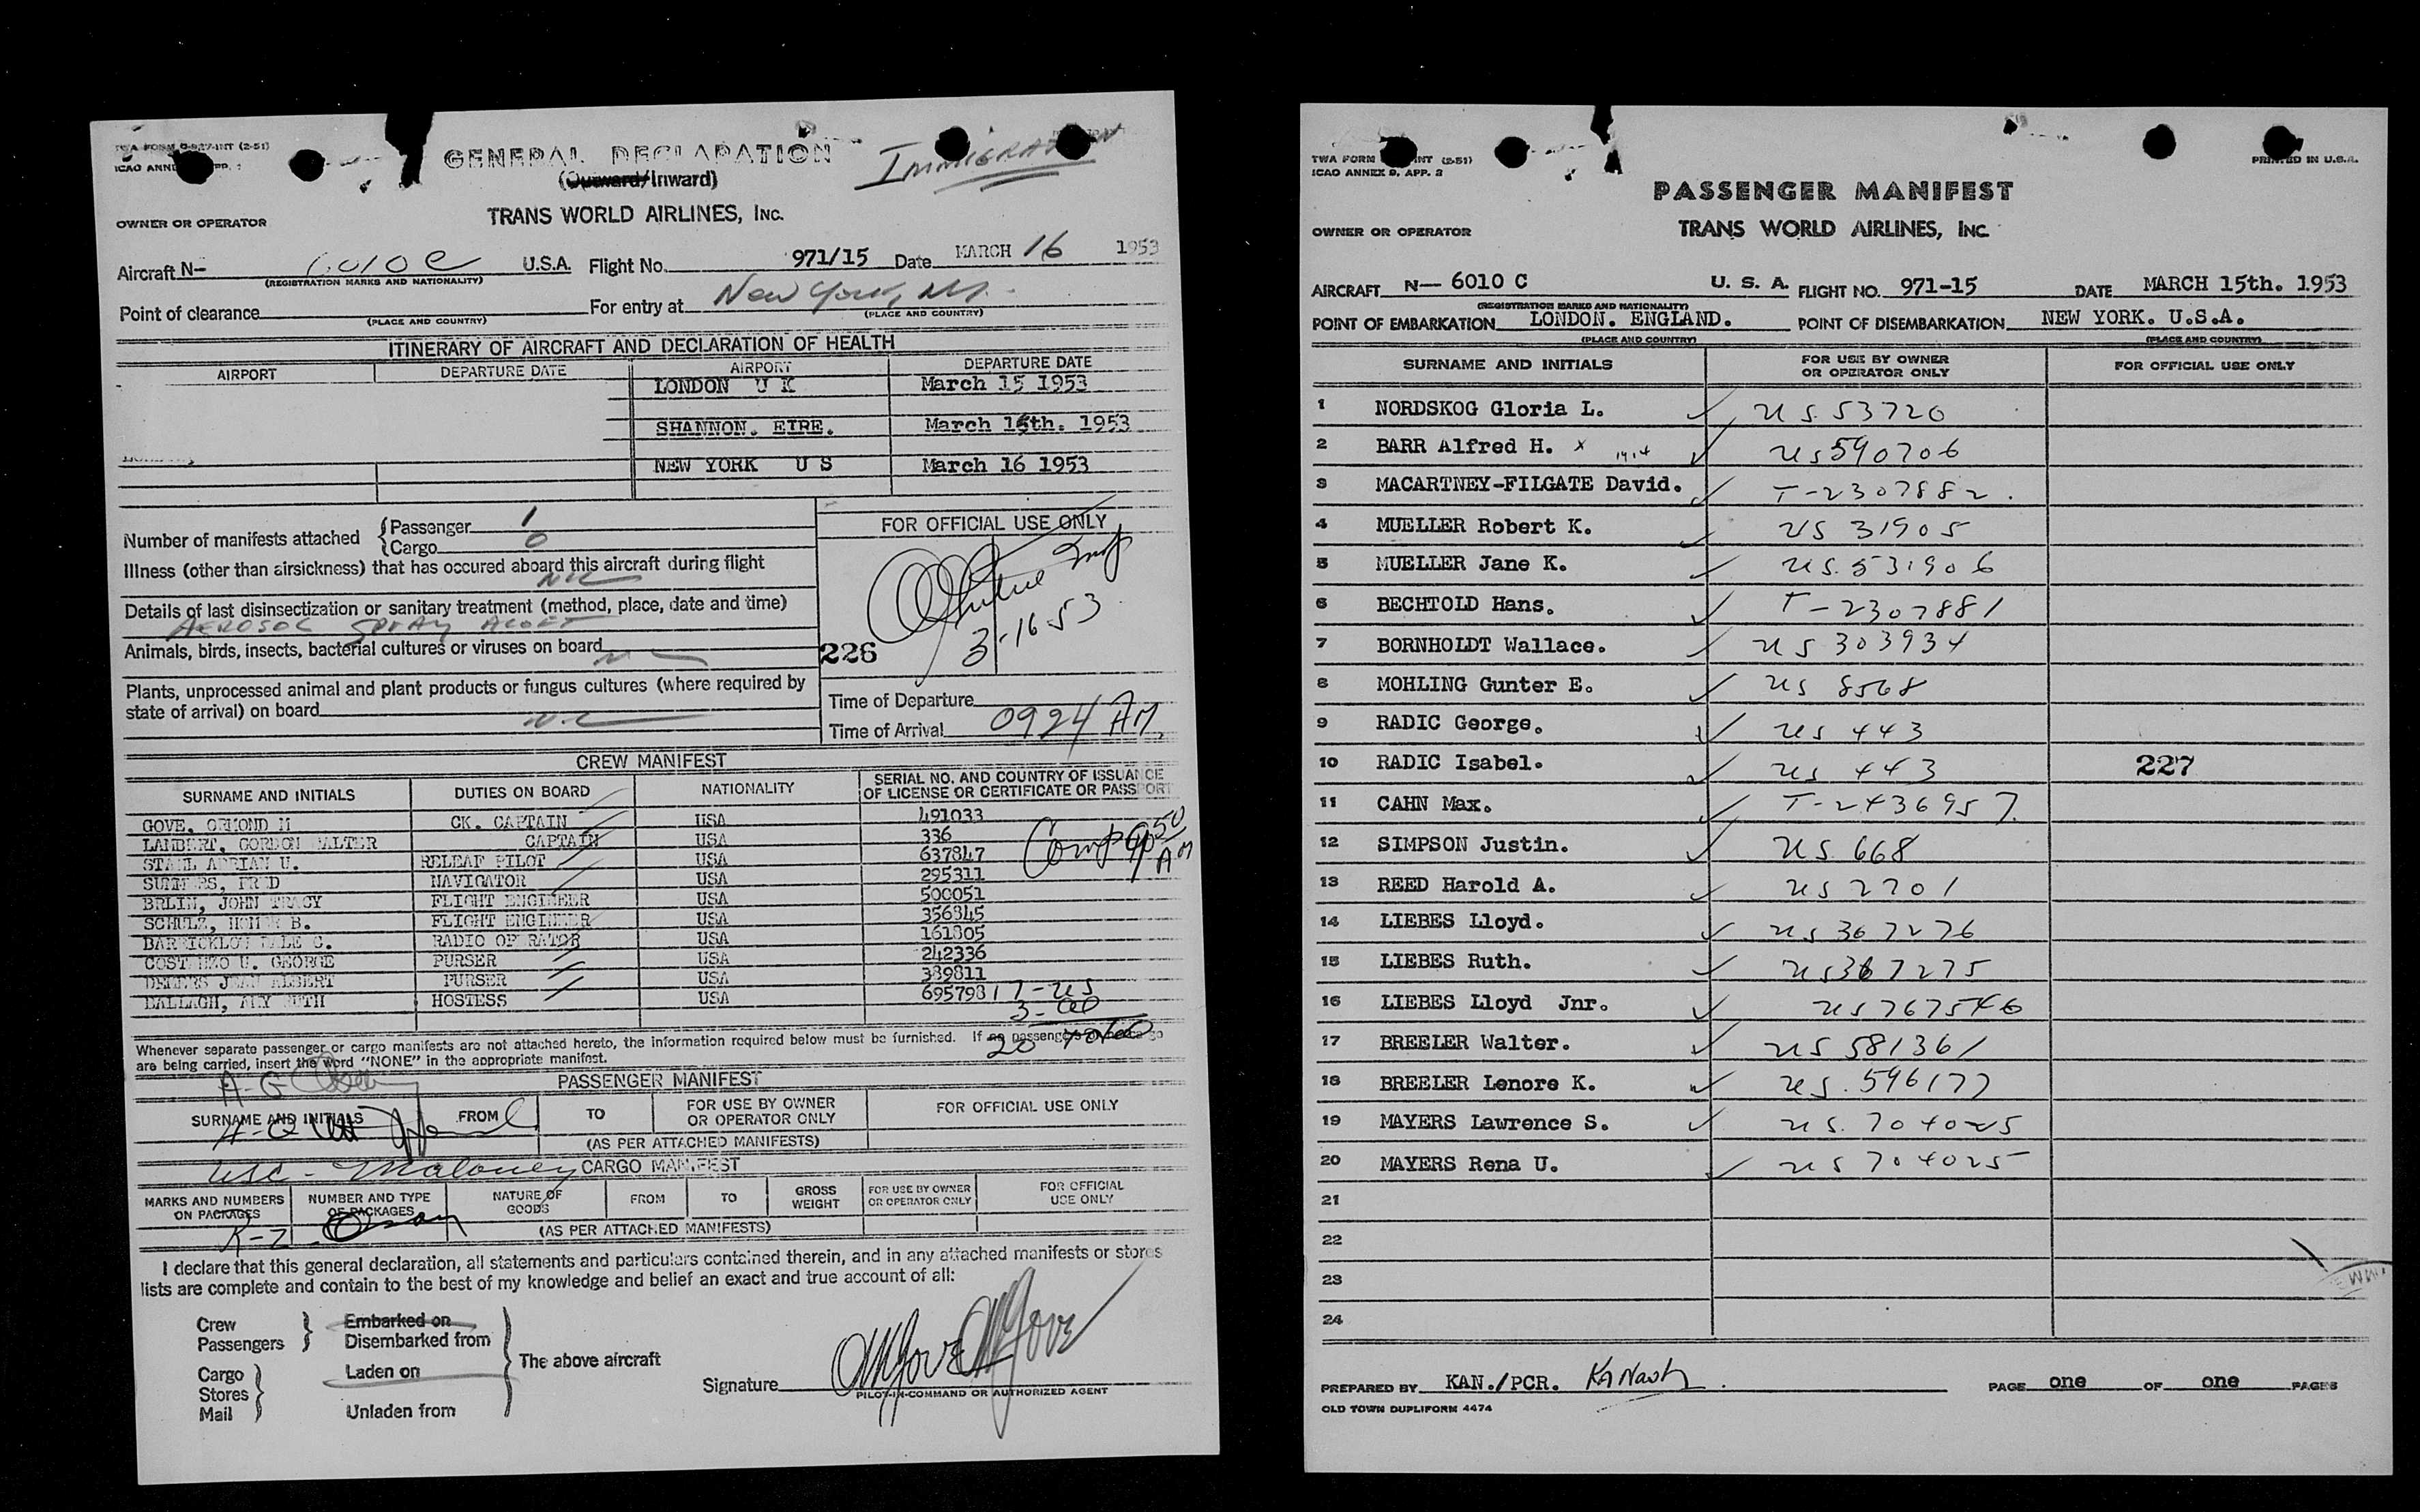 GENERAL DECLARATION
IMMIGRATION
(Outward/Inward)
TRANS WORLD AIRLINES, INC.
OWNER OR OPERATOR
Aircraft N- 6010C U.S.A. Flight No. 971/15 Date MARCH 16 1953
(REGISTRATION MARKS AND NATIONALITY)
Point of clearance For entry at New York, NY.
(PLACE AND COUNTRY) (PLACE AND COUNTRY)
ITINERARY OF AIRCRAFT AND DECLARATION OF HEALTH
AIRPORT DEPARTURE DATE AIRPORT DEPARTURE DATE
LONDON U K March 15 1953
SHANNON. EIRE. March 15th. 1953
NEW YORK U S March 16 1953
Number of manifests attached
Passenger 1
Cargo 0
FOR OFFICIAL USE ONLY
Illness (other than airsickness) that has occured aboard this aircraft during flight
NIL
3-16-53
Details of last disinsectization or sanitary treatment (method, place, date and time)
AEROSOL SPRAY ALOFT
226
Animals, birds, insects, bacterial cultures or viruses on board
Plants, unprocessed animal and plant products or fungus cultures (where required by
state of arrival) on board
Time of Departure
Time of Arrival 0924 AM.
CREW MANIFEST
SURNAME AND INITIALS DUTIES ON BOARD NATIONALITY SERIAL NO. AND COUNTRY OF ISSUANCE
OF LICENSE OR CERTIFICATE OR PASSPORT
GOVE, ORMOND M CK. CAPTAIN USA 491033
LAMBERT, GORDON WALTER CAPTAIN USA 336
STAHL ADRIAN U. RELEAF PILOT USA 637847
Comp 9 50 AM
SUMMERS, FRED NAVIGATOR USA 295311
BRLIN, JOHN TRACY FLIGHT ENGINEER USA 500051
SCHULZ, HOMER B. FLIGHT ENGINEER USA 356845
BARRICKLOW DALE C. RADIO OPERATOR USA 161805
COSTANZO U. GEORGE PURSER USA 242336
DEMERS JEAN ALBERT PURSER USA 389811
DALLAGH, AMY RUTH HOSTESS USA 695798
17-US
3-
20
Whenever separate passenger or cargo manifests are not attached hereto, the information required below must be furnished. If no passengers or cargo
are being carried, insert the word "NONE" in the appropriate manifest.
A-G Olsen
PASSENGER MANIFEST
SURNAME AND INITIALS FROM TO FOR USE BY OWNER
OR OPERATOR ONLY FOR OFFICIAL USE ONLY
(AS PER ATTACHED MANIFESTS)
USC - Maloney
CARGO MANIFEST
MARKS AND NUMBERS
ON PACKAGES NUMBER AND TYPE
OF PACKAGES NATURE OF
GOODS FROM TO GROSS
WEIGHT FOR USE BY OWNER
OR OPERATOR ONLY FOR OFFICIAL
USE ONLY
R-Z
(AS PER ATTACHED MANIFESTS)
I declare that this general declaration, all statements and particulars contained therein, and in any attached manifests or stores
lists are complete and contain to the best of my knowledge and belief an exact and true account of all:
Crew
Passengers
Embarked on
Disembarked from
The above aircraft
Cargo
Stores
Mail
Laden on
Unladen from
Signature OMGove OMGove
PILOT-IN-COMMAND OR AUTHORIZED AGENT
TWA FORM INT (2-51)
ICAO ANNEX 9, APP. 2
PRINTED IN U.S.A.
PASSENGER MANIFEST
TRANS WORLD AIRLINES, INC.
OWNER OR OPERATOR
AIRCRAFT N— 6010 C U. S. A. FLIGHT NO. 971-15 DATE MARCH 15th. 1953
(REGISTRATION MARKS AND NATIONALITY)
POINT OF EMBARKATION LONDON. ENGLAND. POINT OF DISEMBARKATION NEW YORK. U.S.A.
(PLACE AND COUNTRY) (PLACE AND COUNTRY)
SURNAME AND INITIALS FOR USE BY OWNER
OR OPERATOR ONLY FOR OFFICIAL USE ONLY
1 NORDSKOG Gloria L. US 53720
2 BARR Alfred H. x 1914 US 590706
3 MACARTNEY-FILGATE David. T-2307882.
4 MUELLER Robert K. US 31905
5 MUELLER Jane K. US. 531906
6 BECHTOLD Hans. T-2307881
7 BORNHOLDT Wallace. US 303934
8 MOHLING Gunter E. US 8568
9 RADIC George. US 443
10 RADIC Isabel. US 443 227
11 CAHN Max. T-2436957.
12 SIMPSON Justin. US 668
13 REED Harold A. US 2701
14 LIEBES Lloyd. US 367276
15 LIEBES Ruth. US 367275
16 LIEBES Lloyd Jnr. US 767546
17 BREELER Walter. US 581361
18 BREELER Lenore K. US. 596177
19 MAYERS Lawrence S. US. 704025
20 MAYERS Rena U. US 704025
21
22
23
24
PREPARED BY KAN./PCR. KA Nash. PAGE one OF one PAGES
OLD TOWN DUPLIFORM 4474